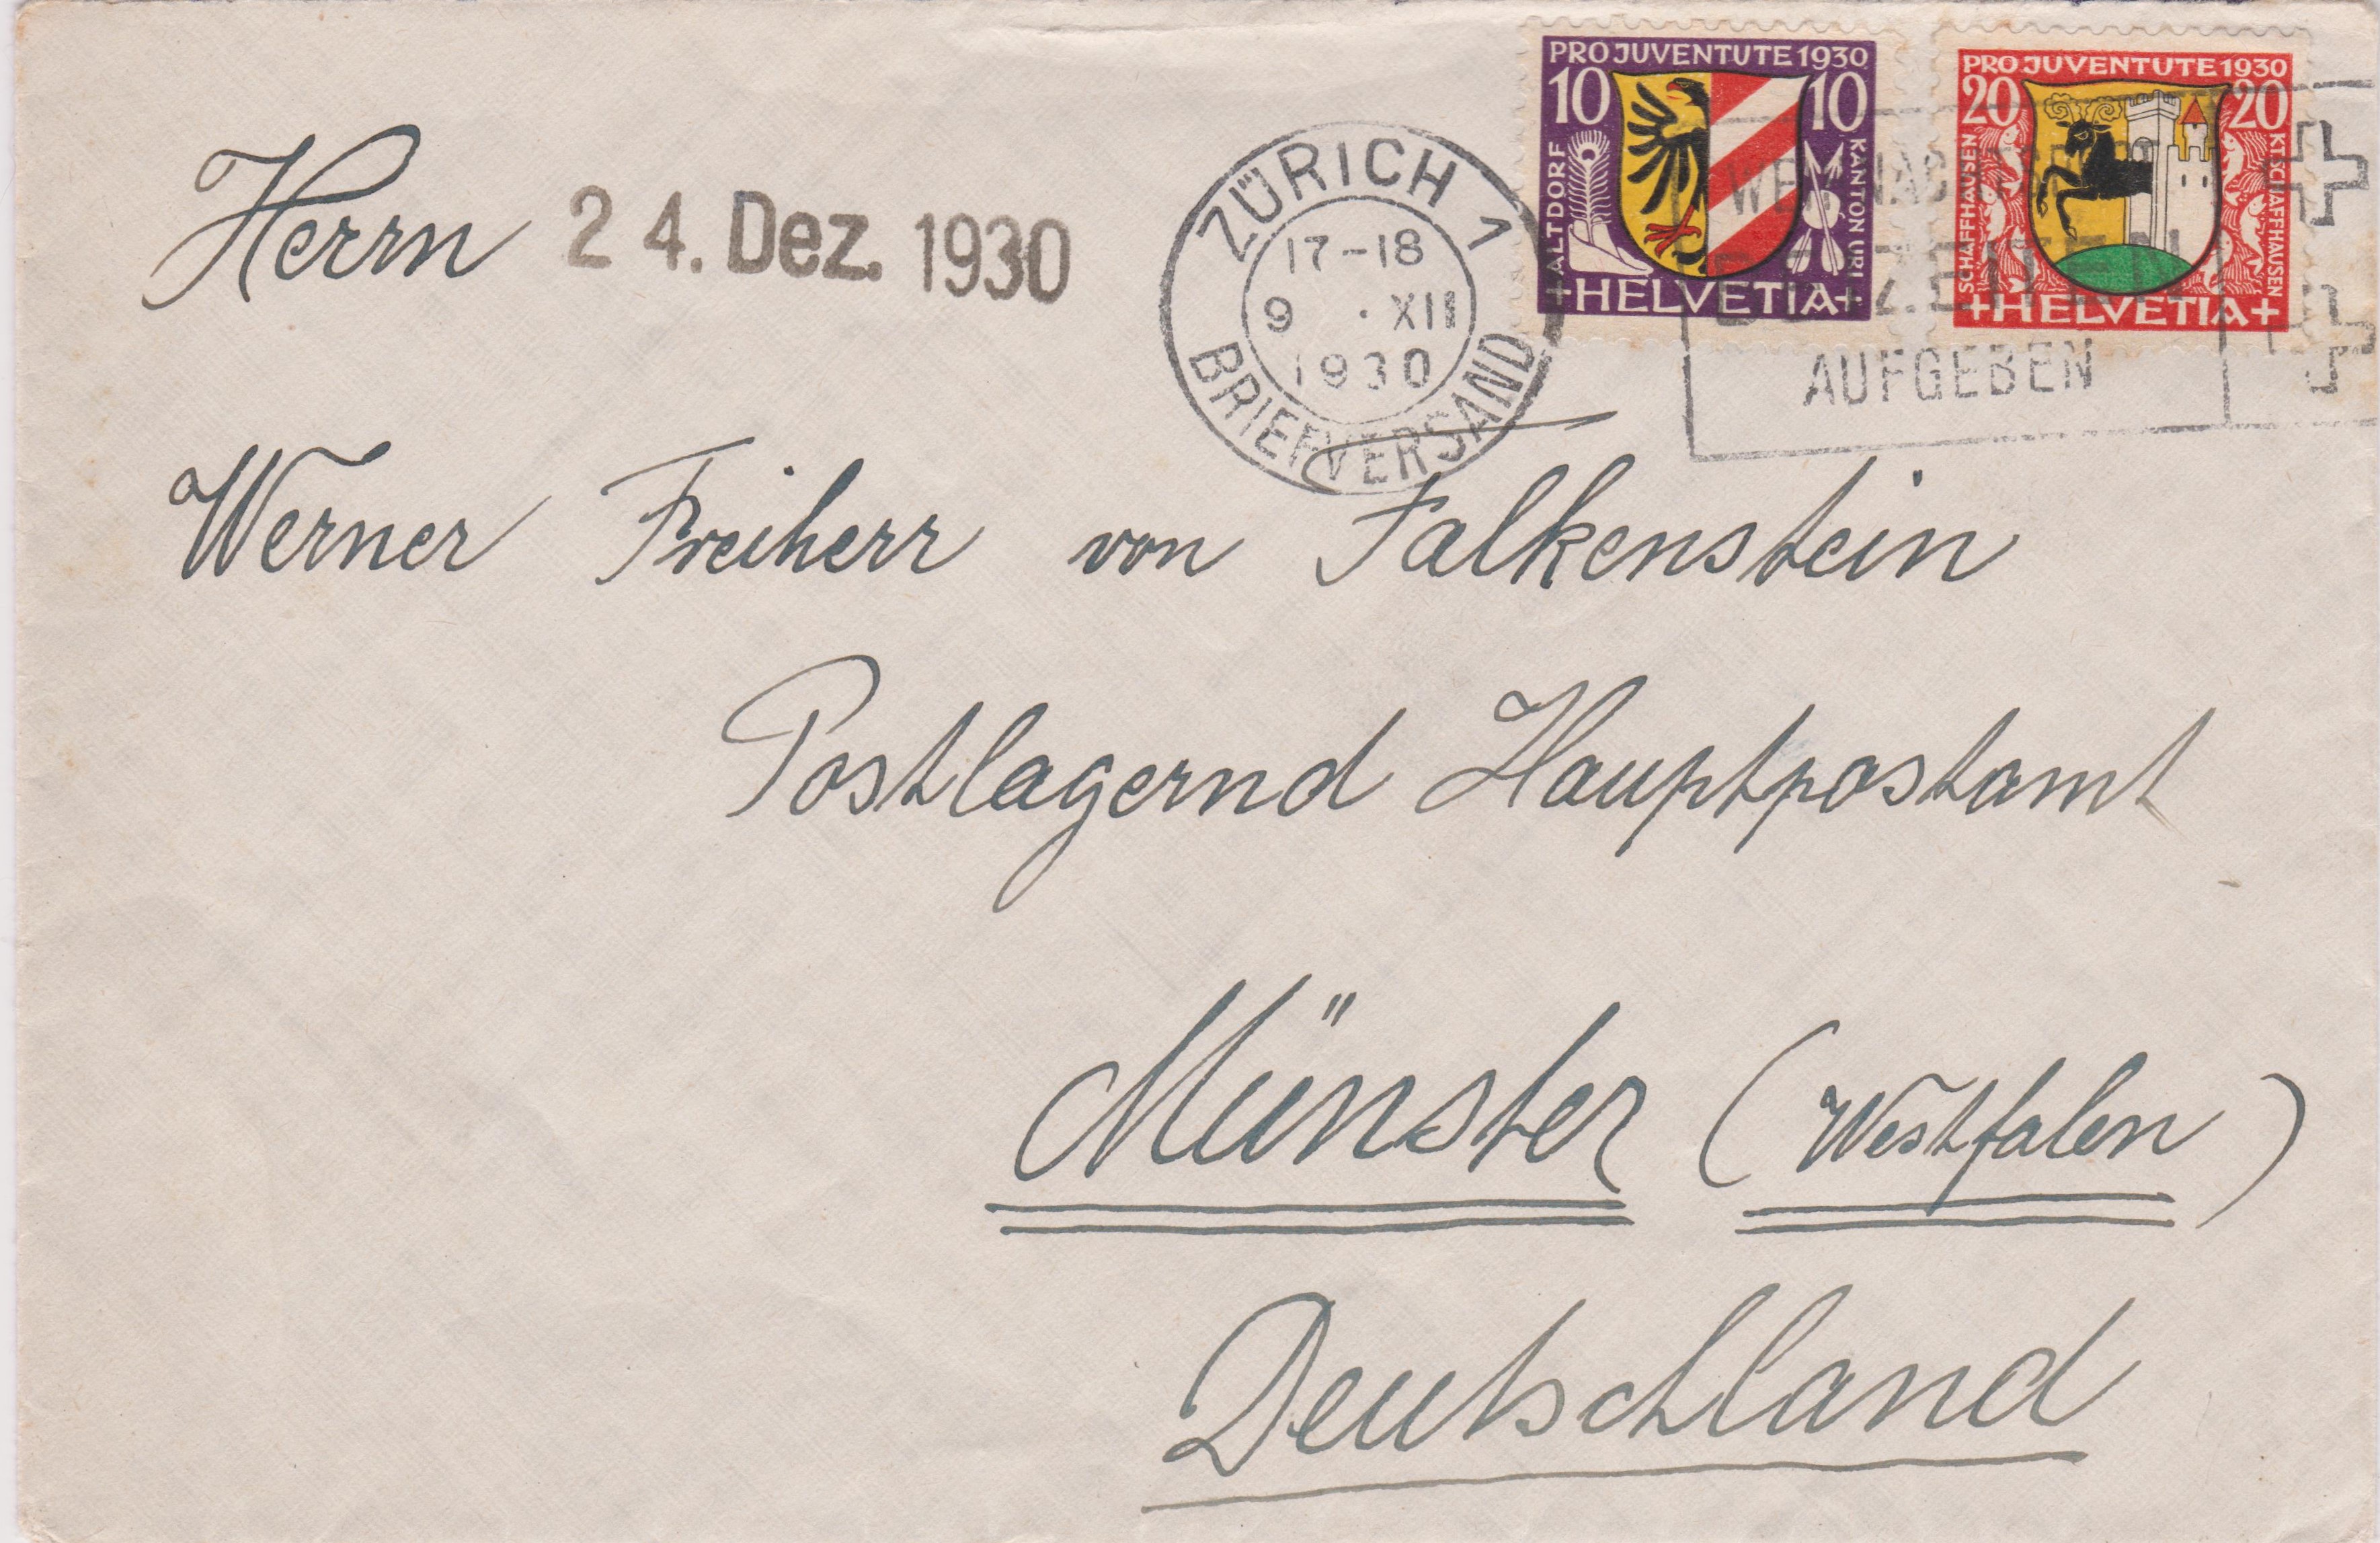 PRO JUVENTUTE 1930
10 10
ALTDORF
KANTON URI
+HELVETIA+
PRO JUVENTUTE 1930
20 20
SCHAFFHAUSEN
KT. SCHAFFHAUSEN
+HELVETIA+
ZÜRICH 1
17-18
9 · XII
1930
BRIEFVERSAND
AUFGEBEN
Herrn 24. Dez. 1930
Werner Freiherr von Falkenstein
Postlagernd Hauptpostamt
Münster (Westfalen)
Deutschland